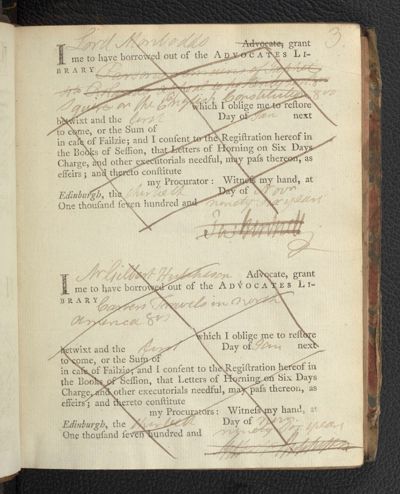 3
I Lord Monboddo Advocate, grant
me to have borrowed out of the ADVOCATES LI-
BRARY
Squire on the English Constitution 8vo
which I oblige me to restore
betwixt and the first Day of Jan next
to come, or the Sum of
in case of Failzie; and I consent to the Registration hereof in
the Books of Session, that Letters of Horning on Six Days
Charge, and other executorials needful, may pass thereon, as
effeirs; and thereto constitute
my Procurator: Witness my hand, at
Edinburgh, the thirtieth Day of Novr
One thousand seven hundred and ninety six years
I Mr Gilbert Hutcheson Advocate, grant
me to have borrowed out of the ADVOCATES LI-
BRARY Carvers Travels in North
America 8vo
which I oblige me to restore
betwixt and the first Day of Jan next
to come, or the Sum of
in case of Failzie; and I consent to the Registration hereof in
the Books of Session, that Letters of Horning on Six Days
Charge, and other executorials needful, may pass thereon, as
effeirs; and thereto constitute
my Procurators: Witness my hand, at
Edinburgh, the thirtieth Day of Novr
One thousand seven hundred and ninety six years